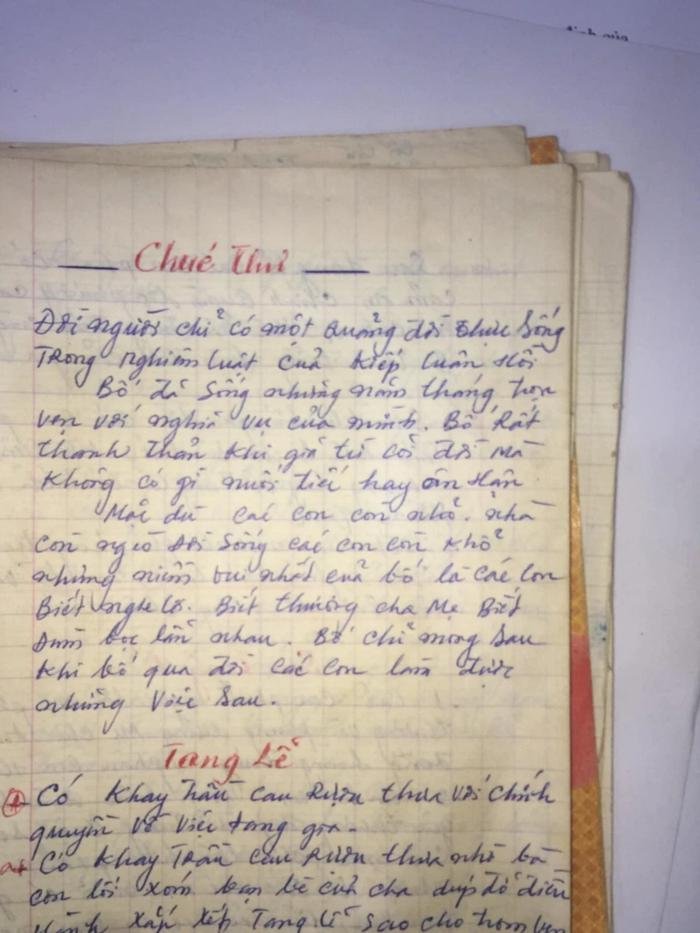 Chúc Thư
Đời người chỉ có một quảng đời thực sống
Trong nghiêm luật của kiếp luân hồi
Bố đã sống những năm tháng trọn
vẹn với nghĩa vụ của mình. Bố rất
thanh thản khi giã từ cõi đời mà
không có gì nuối tiếc hay ân hận
Mặc dù các con còn nhỏ. nhà
còn nghèo đời sống các con còn khổ
nhưng niềm vui nhất của bố là các con
Biết nghe lời. Biết thương cha mẹ Biết
đùm bọc lẫn nhau. Bố chỉ mong sau
khi bố qua đời các con làm được
những việc sau.
Tang Lễ
Có khay trầu cau rượu thưa với chính
quyền về việc tang gia.
Có khay trầu cau rượu thưa nhờ bà
con lối xóm bạn bè của cha giúp đỡ điều
hành xắp xếp Tang lễ sao cho trọn vẹn